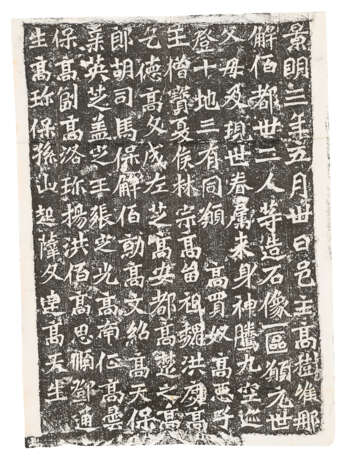 景明三年五月卅日邑主高樹維那
解伯都卅二人等造石像一區願元世
父母及現世眷屬來身神騰九空迹
登十地三有同願 高買奴高惡子
王僧寶夏侯林宗高留祖魏洪度高
乞德高文成左芝高安都高楚之高
郎胡司馬保解伯勍高文紹高天保
英芝盖之王張之光高南征高曇
保高副高洛珍楊洪佰高思順鄧通
生高珍保孫山起薛文達高天生